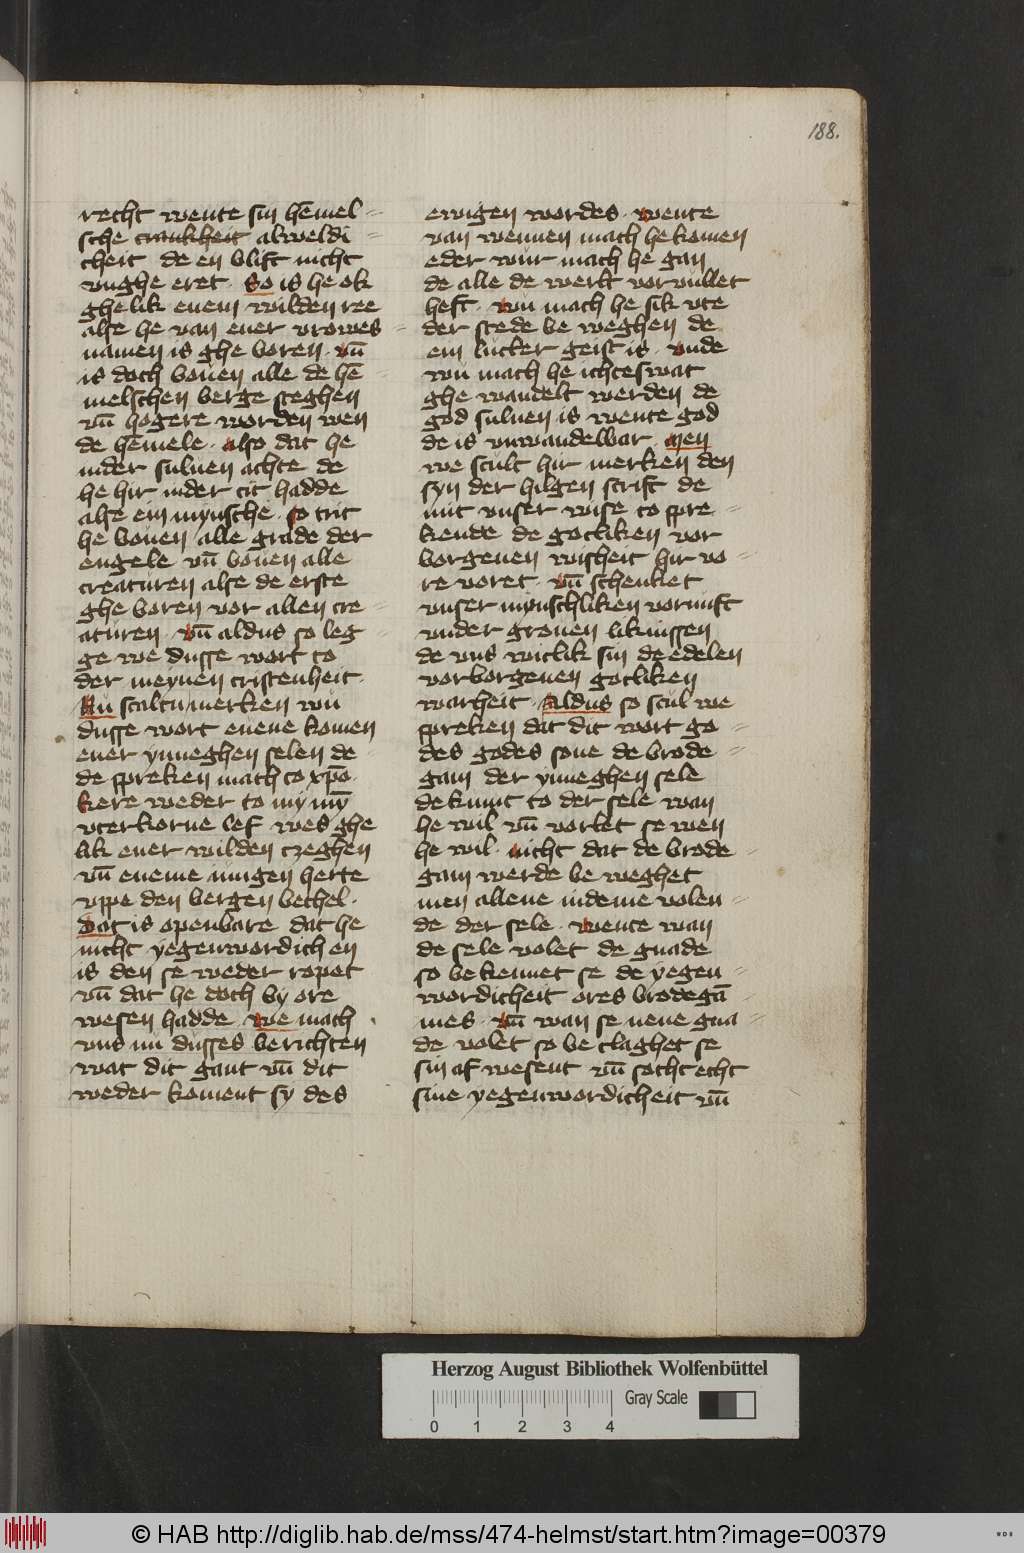 188.
recht wente sin hēmel=
sche crankheit alweldi=
cheit de en blift nicht
vnghe eret · So is he ok
ghelik enem wilden ree
alse he van ener vrowes=
namen is ghe boren · vn̄
is doch bouen alle de hē=
melschen berge steghen
vn̄ hogere worden wen
de hēmele · also dat he
inder suluen achte de
he hir inder tit hadde
alse ein mynsche · so trit
he bouen alle grade der
engele vn̄ bouen alle
creaturen alse de erste
ghe boren vor allen cre=
aturen · vn̄ aldus so leg=
ge we dusse wort to
der meynen cristenheit ·
Nu scaltu merken wu
dusse wort euene komen
ener ynneghen selen de
de spreken mach to xp̄o ·
kere weder to my mȳ
vterkorne lef wes ghe
lik ener wilden czeghen
vn̄ eneme iungen herte
vppe den bergen bethel ·
Dat is openbare dat he
nicht yegenwordich en
is den se weder ropet
vn̄ dat he doch by ore
wesen hadde · we mach
vns nu dusses berichten
wat dit gant vn̄ dit
weder koment sy des
ewigen wordes · wente
van wennen mach he komen
eder wur mach he gan
de alle de werlt vorvullet
heft · wu mach he sik vte
der stede be weghen de
ein lucker geist is · vnde
wu mach he ichteswat
ghe wandelt werden de
god suluen is wente god
de is vnwandelbar · Men
we scult hir merken den
syn der hilgen scrift de
mit vnser wise to spre=
kende de gotliken vor
borgenen wisheit hir vo=
re voret · vn̄ schenket
vnser mynschliken vornuft
vnder grouen liknissen
de vns witlik sin de edelen
vorborgenen gotliken
warheit · Aldus so scul we
spreken dat dit wort go=
des godes sone de brode=
gam der ynneghen sele
de kumt to der sele wan
he wil vn̄ vorlet se wen
he wil · nicht dat de brode=
gam werde be weghet
men allene indeme volen=
de der sele · wente wan
de sele volet de gnade
so be kennet se de yegen=
wordicheit ores brodegā=
mes · vn̄ wan se nene gna=
de volet so be claghet se
sin af wesent vn̄ socht echt
sine yegenwordicheit vn̄
Herzog August Bibliothek Wolfenbüttel
Gray Scale
0 1 2 3 4
© HAB http://diglib.hab.de/mss/474-helmst/start.htm?image=00379